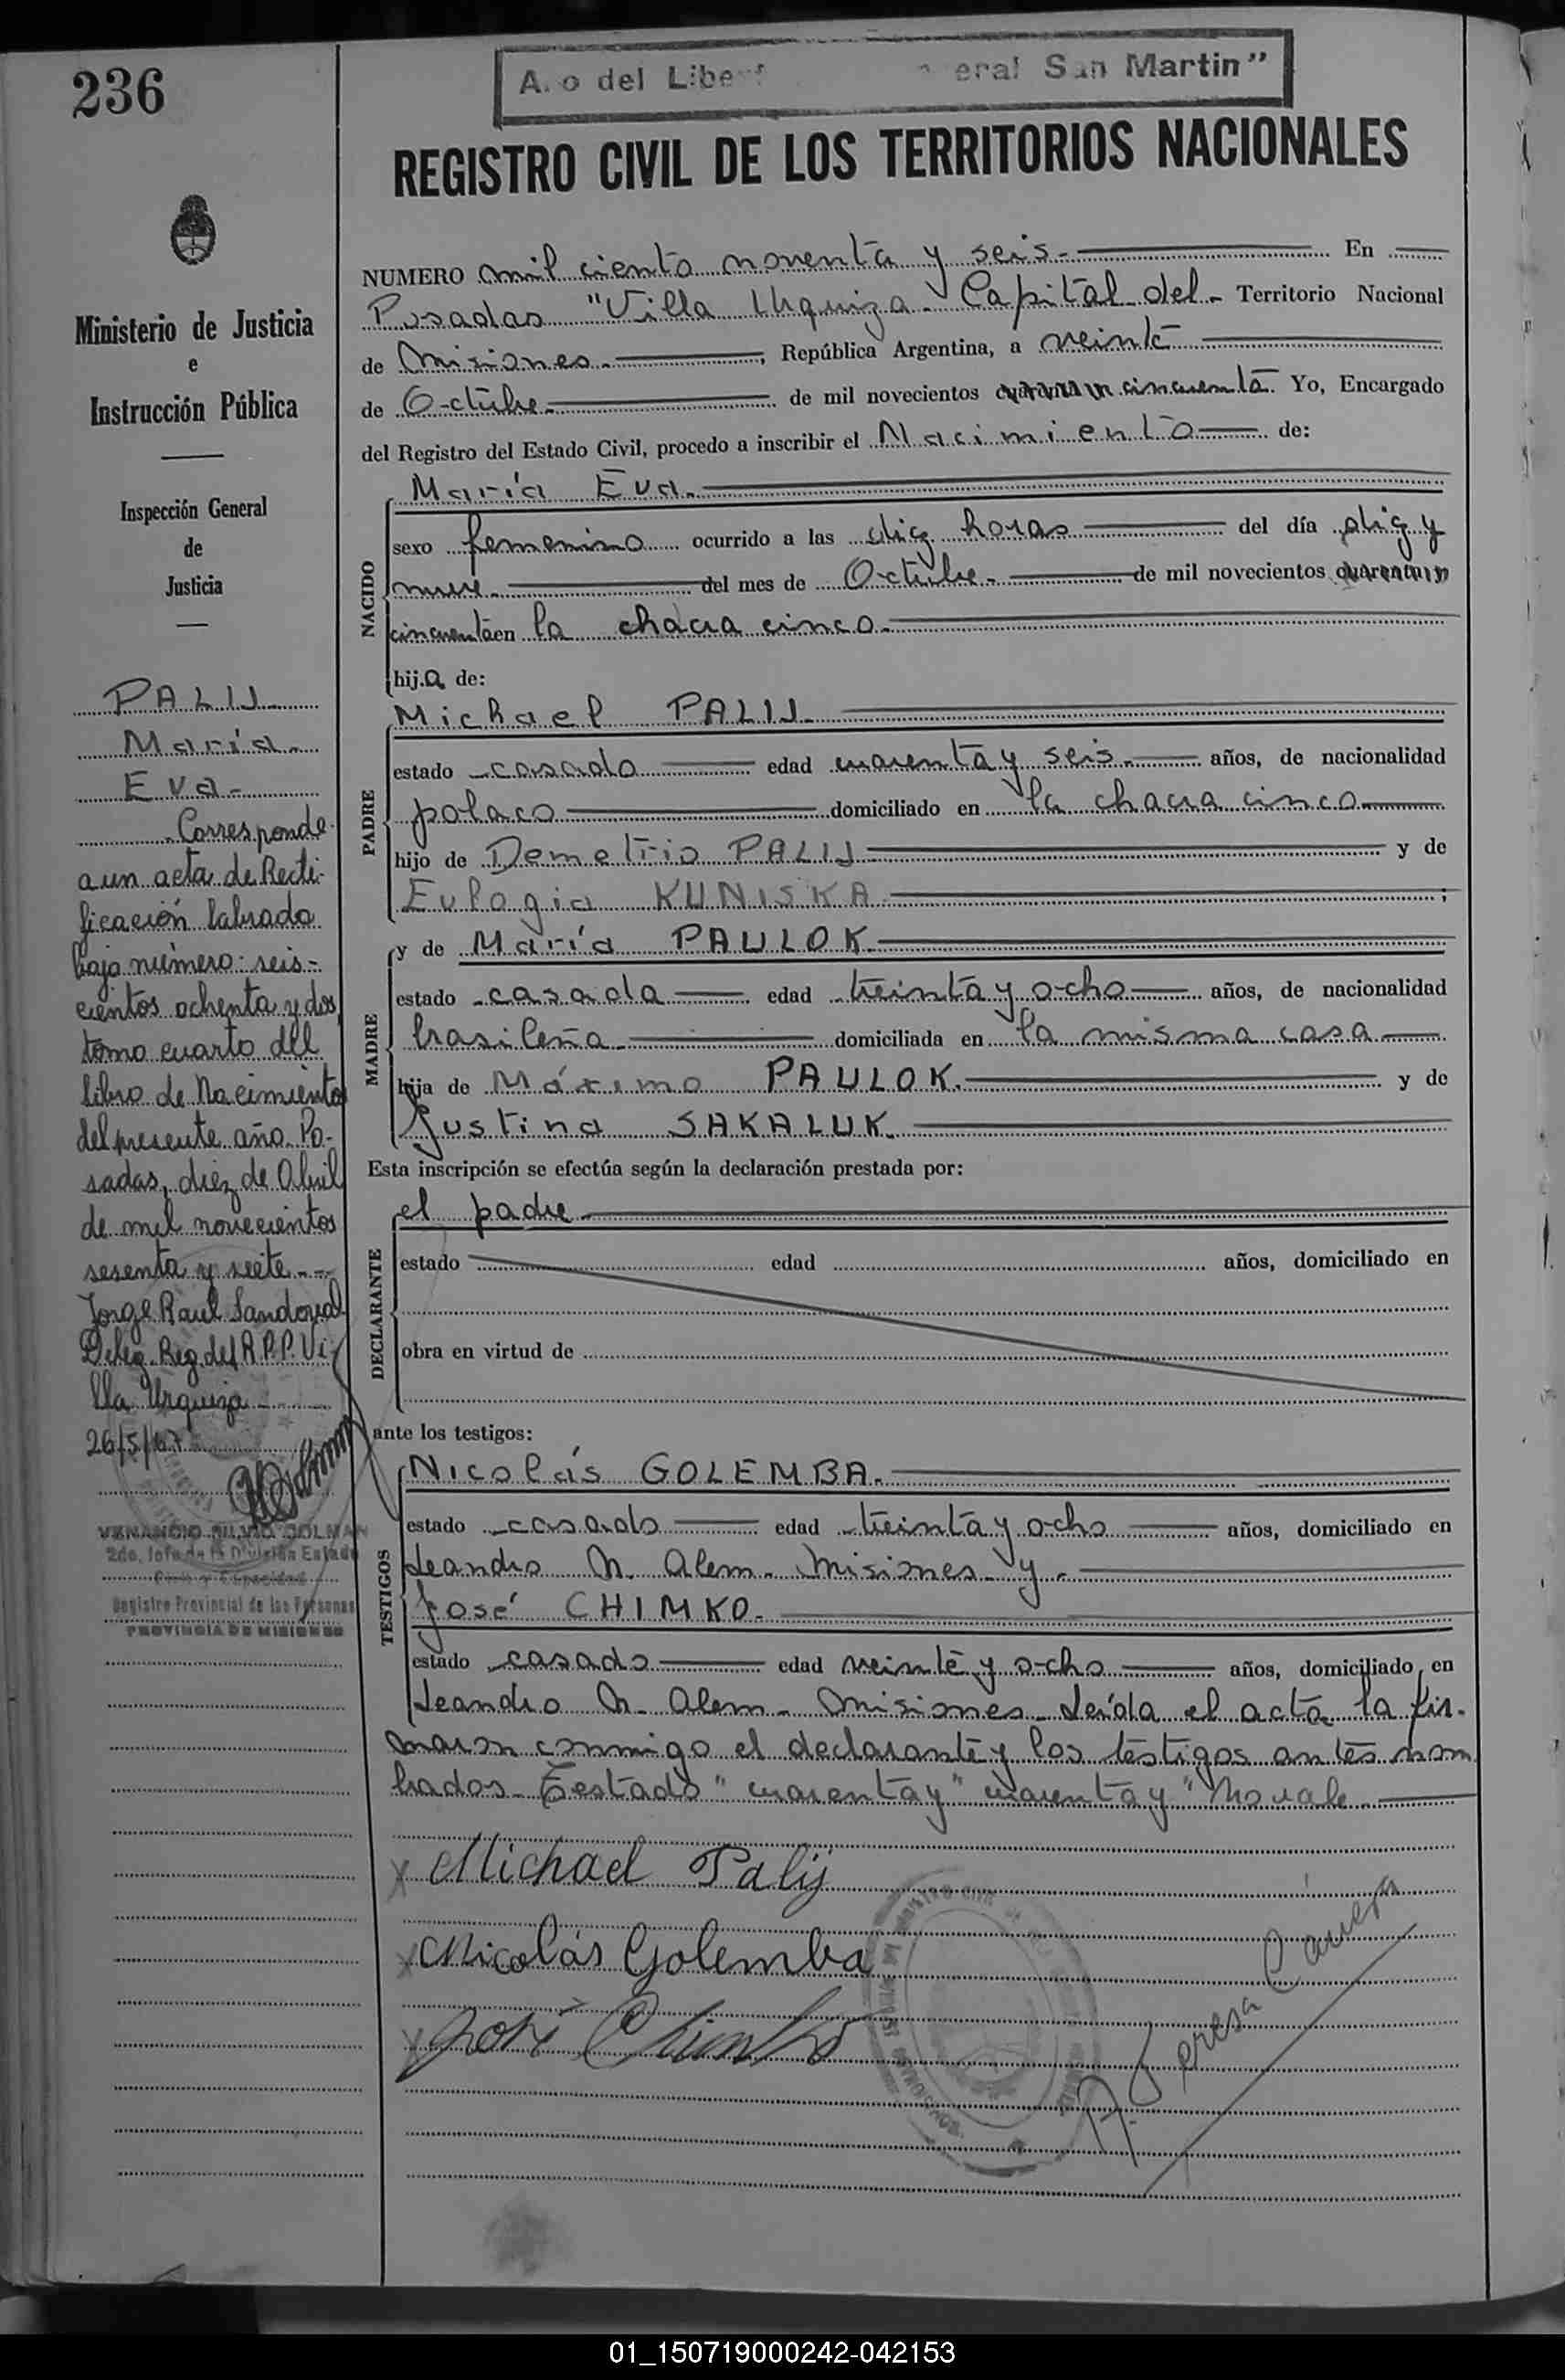 236
A. o del Libe eral San Martin"
REGISTRO CIVIL DE LOS TERRITORIOS NACIONALES
Ministerio de Justicia
e
Instrucción Pública
Inspección General
de
Justicia
PALIJ.
María
Eva-
Corresponde
a un acta de Recti-
ficación labrada
bajo número: seis-
cientos ochenta y dos,
tomo cuarto del
libro de Nacimientos
del presente año. Po-
sadas, diez de Abril
de mil novecientos
sesenta y siete.--
Jorge Raul Sandoval
Deleg. Reg. del R.P.P. Vi-
lla Urquiza
26/5/67
VENANCIO SILVIO DOLMAN
2do. Jefe de la División Estado
Civil y Capacidad
Registro Provincial de las Personas
PROVINCIA DE MISIONES
NUMERO mil ciento noventa y seis.- En
Posadas "Villa Urquiza - Capital del - Territorio Nacional
de Misiones.-, República Argentina, a veinte
de Octubre.- de mil novecientos cuarenta y cincuenta. Yo, Encargado
del Registro del Estado Civil, procedo a inscribir el Nacimiento de:
NACIDO
María Eva.-
sexo femenino ocurrido a las diez horas del día diez y
nueve.- del mes de Octubre.- de mil novecientos cuarenta y
cincuenta en la chacra cinco.-
hija de:
PADRE
Michael PALIJ.
estado casado edad cuarenta y seis.- años, de nacionalidad
polaco domiciliado en la chacra cinco
hijo de Demetrio PALIJ y de
Eulogia KUNISKA ;
MADRE
y de María PAULOK.
estado casada edad treinta y ocho años, de nacionalidad
brasileña domiciliada en la misma casa
hija de Máximo PAULOK. y de
Justina SAKALUK.
Esta inscripción se efectúa según la declaración prestada por:
DECLARANTE
el padre
estado edad años, domiciliado en
obra en virtud de
ante los testigos:
TESTIGOS
Nicolás GOLEMBA.
estado casado edad treinta y ocho años, domiciliado en
Leandro N. Alem - Misiones - y -
José CHIMKO.
estado casado edad veinte y ocho años, domiciliado en
Leandro N. Alem - Misiones - Leída el acta la fir-
maron conmigo el declarante y los testigos antes nom
brados. Testado "cuarenta y" "cuarenta y" No vale.
x Michael Palij
x Nicolás Golemba
x José Chimko
01_150719000242-042153